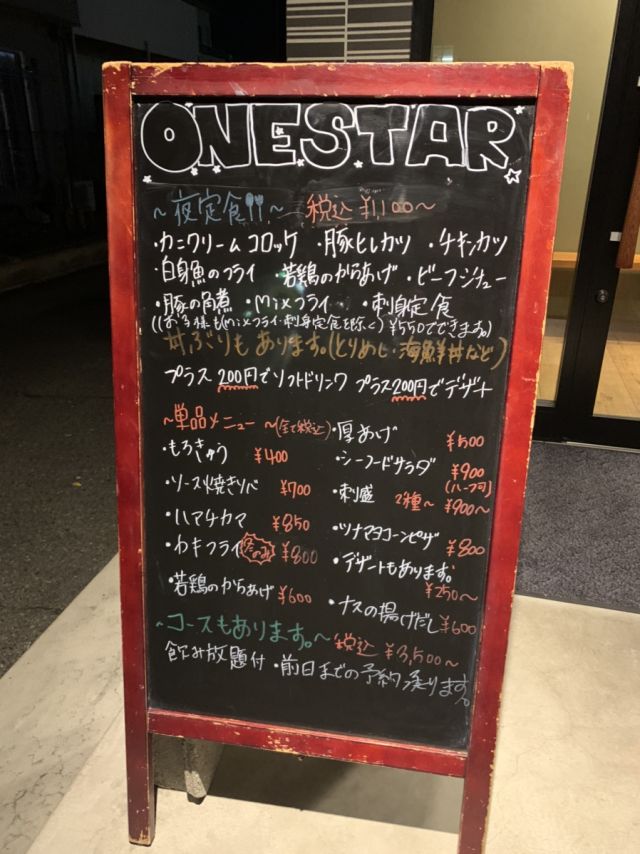 ONESTAR
~夜定食~ 税込 ¥1,100~
・カニクリームコロッケ ・豚ヒレカツ ・チキンカツ
・白身魚のフライ ・若鶏のからあげ ・ビーフシチュー
・豚の角煮 ・Mixフライ ・刺身定食
((お子様も(Mixフライ・刺身定食を除く)¥550でできます。)
丼ぶりもあります。(とりめし・海鮮丼など)
プラス200円でソフトドリンク プラス200円でデザート
~単品メニュー~(全て税込)
・もろきゅう ¥400
・ソース焼きそば ¥700
・ハマチカマ ¥850
・カキフライ 冬のみ ¥800
・若鶏のからあげ ¥600
・厚あげ ¥500
・シーフードサラダ ¥900
(ハーフ可)
・刺盛 2種~ ¥900~
・ツナマヨコーンピザ ¥800
・デザートもあります。
¥250~
・ナスの揚げだし ¥600
~コースもあります。~ 税込 ¥3,500~
飲み放題付・前日までの予約承ります。